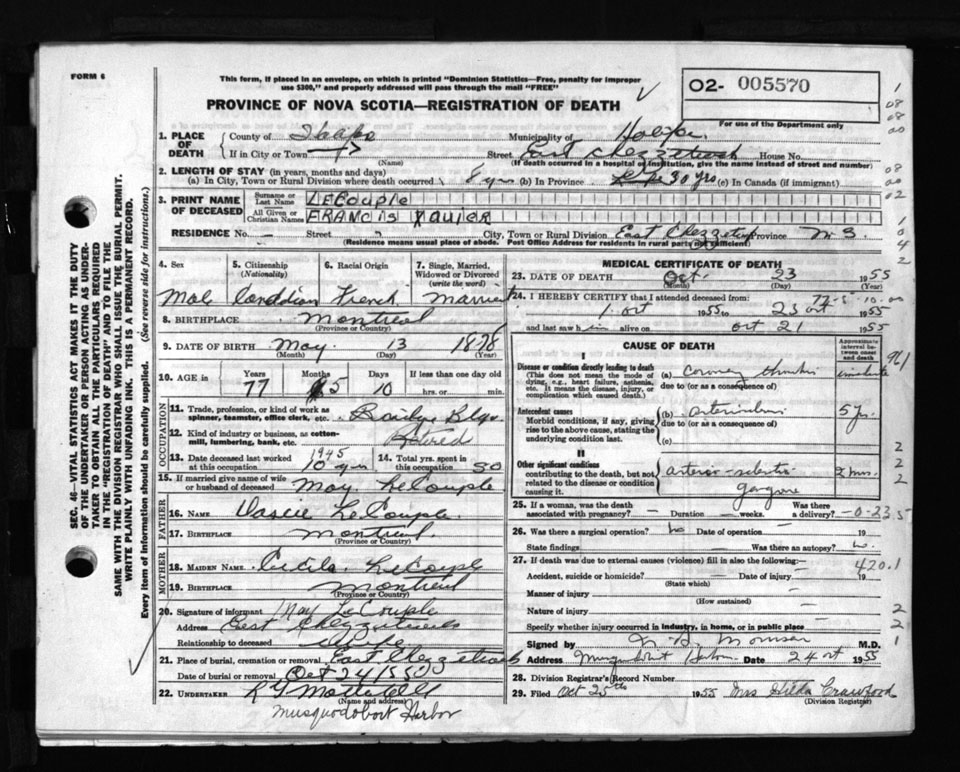 FORM 6
This form, if placed in an envelope, on which is printed "Dominion Statistics—Free, penalty for improper
use $300," and properly addressed will pass through the mail "FREE"
PROVINCE OF NOVA SCOTIA—REGISTRATION OF DEATH
02- 005570
For use of the Department only
1. PLACE OF DEATH
County of
Municipality of
If in City or Town
(Name)
Street East Chezzetcook House No.
(If death occurred in a hospital or institution, give the name instead of street and number)
2. LENGTH OF STAY (in years, months and days)
(a) In City, Town or Rural Division where death occurred 8 yrs (b) In Province 30 yrs (c) In Canada (if immigrant)
3. PRINT NAME OF DECEASED
Surname or Last Name LECOUPLE
All Given or Christian Names FRANCIS XAVIER
RESIDENCE No. — Street City, Town or Rural Division East Chezzetcook Province N S.
(Residence means usual place of abode. Post Office Address for residents in rural parts not sufficient)
4. Sex
5. Citizenship (Nationality)
6. Racial Origin
7. Single, Married, Widowed or Divorced (write the word)
Male Canadian French Married
8. BIRTHPLACE Montreal
(Province or Country)
9. DATE OF BIRTH May 13 1878
(Month) (Day) (Year)
10. AGE in
Years Months Days If less than one day old
77 5 10 hrs. or min.
OCCUPATION
11. Trade, profession, or kind of work as spinner, teamster, office clerk, etc.
12. Kind of industry or business, as cotton-mill, lumbering, bank, etc. Retired
13. Date deceased last worked at this occupation 1945 10 yrs
14. Total yrs. spent in this occupation 30
15. If married give name of wife or husband of deceased May LeCouple
FATHER
16. NAME LeCouple
17. BIRTHPLACE Montreal
(Province or Country)
MOTHER
18. MAIDEN NAME LeCouple
19. BIRTHPLACE Montreal
(Province or Country)
20. Signature of informant May LeCouple
Address East Chezzetcook
Relationship to deceased Wife
21. Place of burial, cremation or removal East Chezzetcook
Date of burial or removal Oct 24/55
22. UNDERTAKER
(Name and address)
Musquodoboit Harbor
MEDICAL CERTIFICATE OF DEATH
23. DATE OF DEATH Oct. 23 1955
(Month) (Day) (Year)
24. I HEREBY CERTIFY that I attended deceased from:
1 Oct 1955 to 23 Oct 1955
and last saw him alive on Oct 21 1955
CAUSE OF DEATH
Approximate interval between onset and death
I
Disease or condition directly leading to death
(This does not mean the mode of dying, e.g., heart failure, asthenia, etc. It means the disease, injury, or complication which caused death.)
(a) Coronary
due to (or as a consequence of)
Antecedent causes
Morbid conditions, if any, giving rise to the above cause, stating the underlying condition last.
(b)
due to (or as a consequence of)
5 yr.
(c)
II
Other significant conditions
contributing to the death, but not related to the disease or condition causing it.
gangrene
25. If a woman, was the death associated with pregnancy? — Duration — weeks. Was there a delivery?
26. Was there a surgical operation? no Date of operation 19
State findings — Was there an autopsy? no.
27. If death was due to external causes (violence) fill in also the following:
420.1
Accident, suicide or homicide? — Date of injury 19
(State which)
Manner of injury
(How sustained)
Nature of injury
Specify whether injury occurred in industry, in home, or in public place
Signed by M.D.
Address Date 24 Oct 1955
28. Division Registrar's Record Number
29. Filed Oct 25th 1955 Mrs Hilda Crawford
(Division Registrar)
SEC. 46—VITAL STATISTICS ACT MAKES IT THE DUTY
OF THE UNDERTAKER OR PERSON ACTING AS UNDER-
TAKER TO OBTAIN ALL THE PARTICULARS REQUIRED
IN THE "REGISTRATION OF DEATH" AND TO FILE THE
SAME WITH THE DIVISION REGISTRAR WHO SHALL ISSUE THE BURIAL PERMIT.
WRITE PLAINLY WITH UNFADING INK. THIS IS A PERMANENT RECORD.
Every item of information should be carefully supplied. (See reverse side for instructions.)